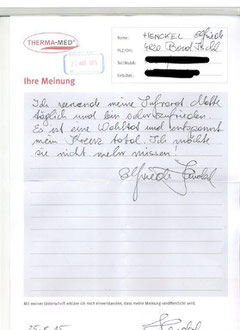 THERMA-MED®
Name: HENCKEL Elfriede
PLZ/Ort: 4820 Bad Ischl
Tel/Mobil:
Geb.dat.:
Ihre Meinung
Ich verwende meine Infrarot Matte
täglich und bin sehr zufrieden.
Es ist eine Wohltat und entspannt
mein Kreuz total. Ich möchte
sie nicht mehr missen!
Elfriede Henckel
Mit meiner Unterschrift erkläre ich mich einverstanden, dass meine Meinung veröffentlicht wird.
25.8.15